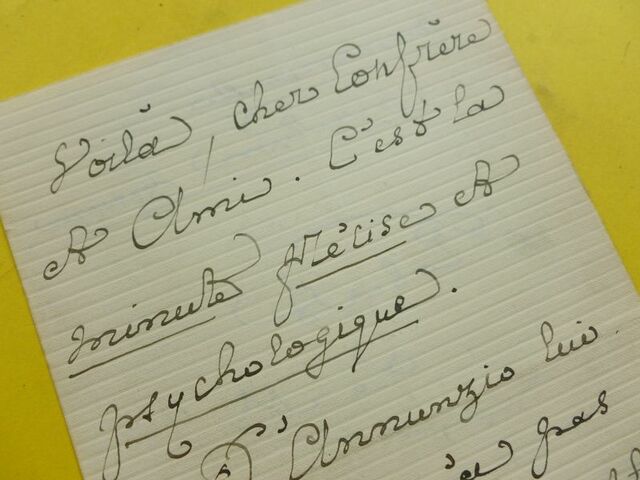 Voilà, cher Confrère
& Ami. C'est la
minute précise &
psychologique.
D'Annunzio lui
pas